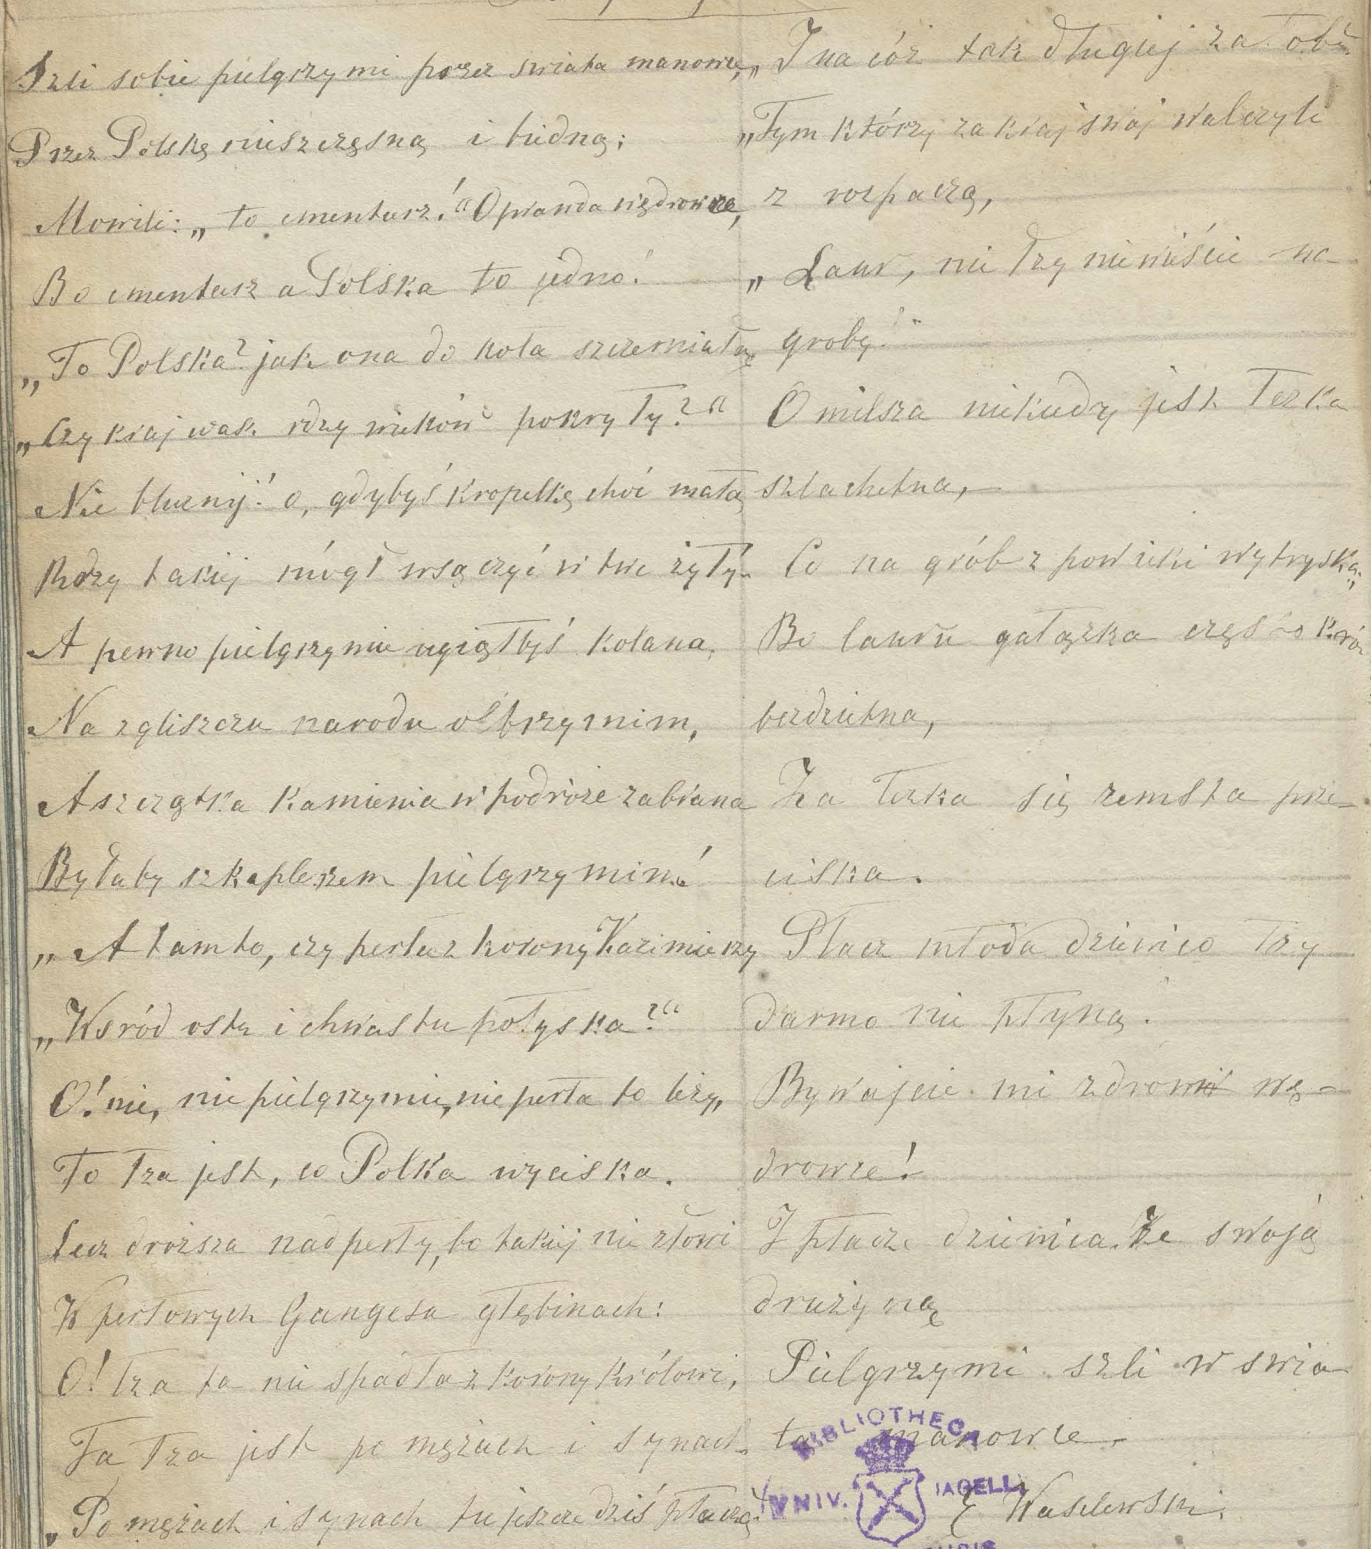 Szli sobie pielgrzymi przez swiata manowce,
Przez Polskę nieszczęsną i biedną;
Mowili: „to cmentarz!“ O prawda wędrowce,
Bo cmentarz a Polska to jedno!
„To Polska? jak ona do koła szczerniała,
„Czy kraj wasz rdzy wieków pokryty?“
Nie bluznij! o, gdybyś kropelkę choć małą
Rdzy takiej mógł wsączyć w twe żyły.
A pewno pielgrzymie ugiąłbyś kolana,
Na zgliszczu narodu olbrzymim,
A szczątka kamienia w podróże zabrana
Byłaby szkaplerzem pielgrzymim!
„A tamto, czy perła z korony Kazimierzy
„Wsród ostu i chwastu połyska?“
O! nie, nie pielgrzymie, nie perła to leży,
To łza jest, co Polka wyciska.
Lecz droższa nad perły, bo takiej nie złowi
W perłowych Gangesa głębinach:
O! łza ta nie spadła z korony królowi,
Ta łza jest po mężach i synach.
„Po mężach i synach tu jeszcze dziś płaczą
„I na cóż tak długiej załoby
„Tym którzy za kraj swój walczyli
z rozpaczą,
„Laur, nie łzy nieście na
groby!“
O milsza niekiedy jest łezka
szlachetna,
Co na grób z powieki wytryska;
Bo lauru gałązka częs
bezdzietna,
Za łezka się zemsta prze-
ciska.
Płacz młoda dziewico łzy
darmo nie płyną!
Bywajcie mi zdrowi wę-
drowce!
I płacze dziewica. Ze swoją
drużyną
Pielgrzymi szli w swia
ta manowce.
E Wasilewski.
BIBLIOTHECA
VNIV. IAGELL